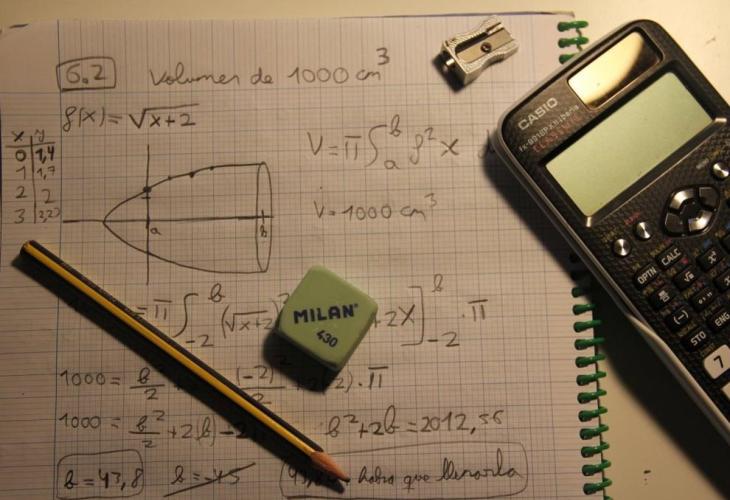 6.2 Volumen de 1000 cm³
f(x) = √x+2
x y
0 1,4
1 1,7
2 2
3 2,2
V = π ∫ₐᵇ f² x
V = 1000 cm³
a b
= π ∫₋₂ᵇ (√x+2)² + 2x]₋₂ᵇ · π
MILAN®
430
1000 = b²/2 (-2)²/2 ) · π
1000 = b²/2 + 2b - 2
b² + 2b = 2012,56
b = 43,8 b = -45 habra que llenarla
CASIO
fx-991SPX Iberia
CLASSWIZ
OPTN CALC
(−)
STO ENG
7